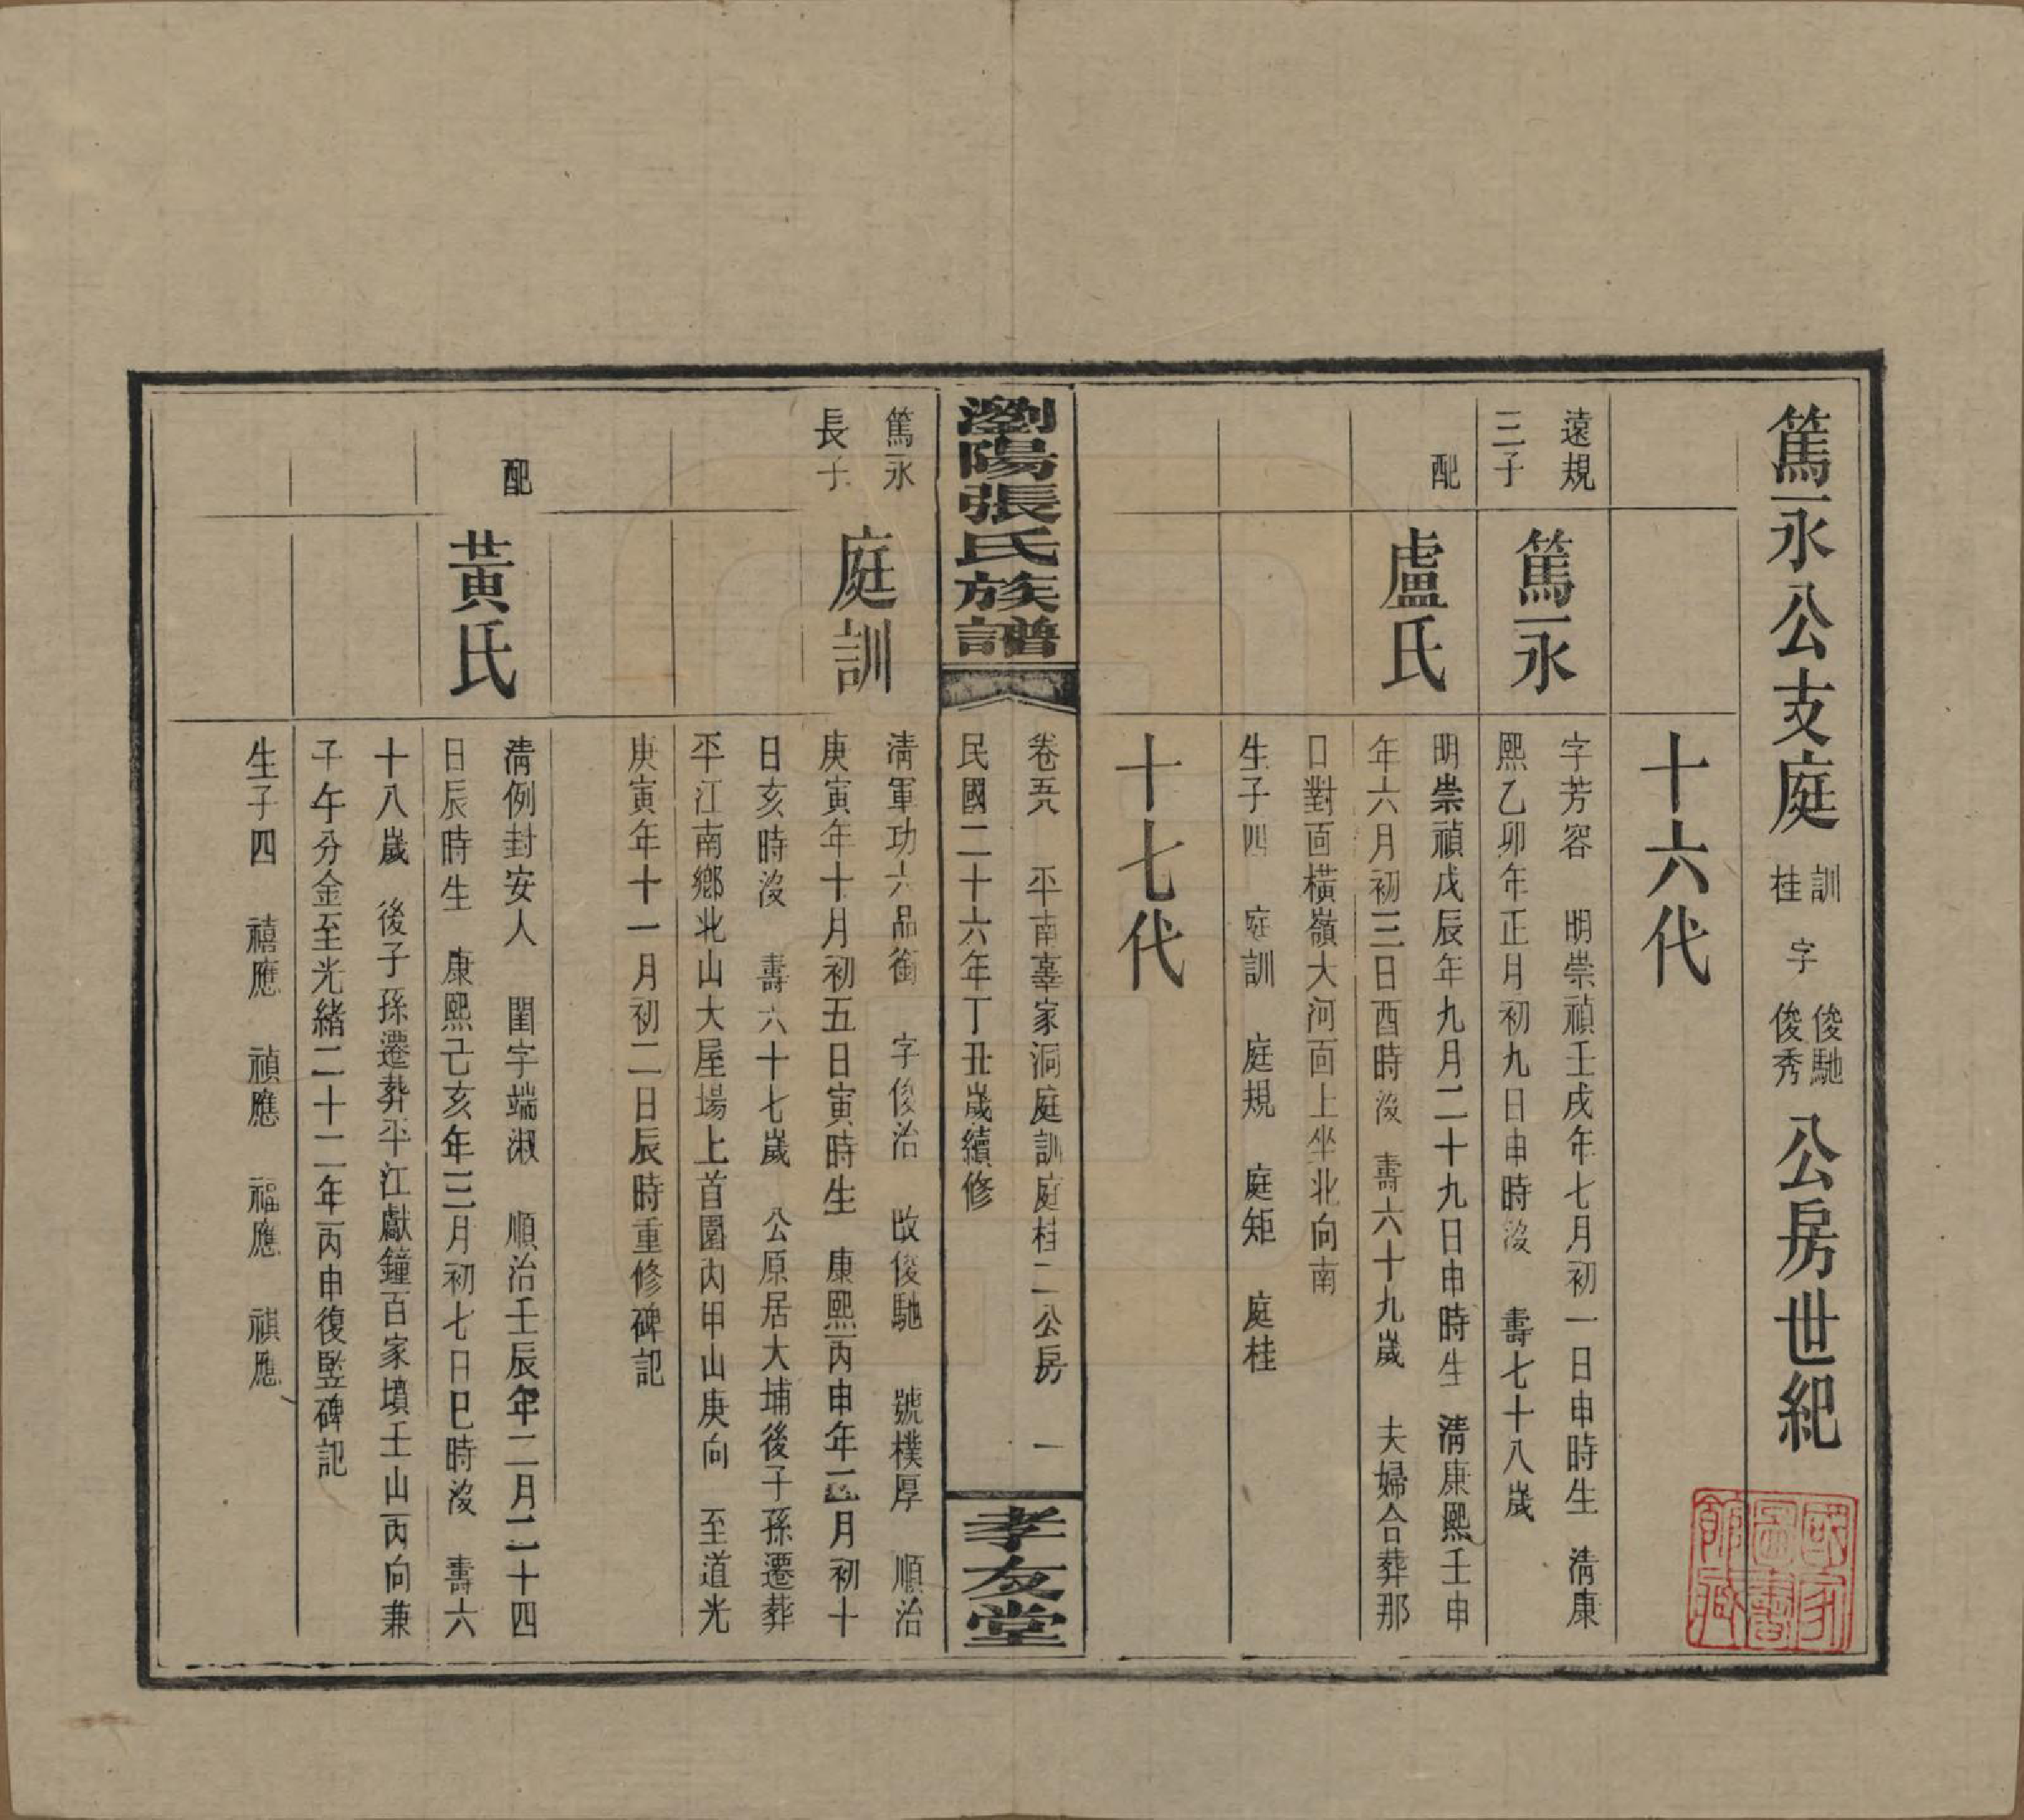 篤永公支庭訓桂字俊馳俊秀公房世紀
十六代
遠規
三子
篤永
字芳容　明崇禎壬戌年七月初一日申時生　清康
熙乙卯年正月初九日申時沒　壽七十八歲
配
盧氏
明崇禎戊辰年九月二十九日申時生　清康熙壬申
年六月初三日酉時沒　壽六十九歲　夫婦合葬那
口對面橫嶺大河面上坐北向南
生子四　庭訓　庭規　庭矩　庭桂
十七代
瀏陽張氏族譜
卷五　平南辜家洞庭訓庭桂二公房　一
民國二十六年丁丑歲續修
孝友堂
篤永
長子
庭訓
清軍功六品銜　字俊治　改俊馳　號樸厚　順治
庚寅年十月初五日寅時生　康熙丙申年三月初十
日亥時沒　壽六十七歲　公原居大埔後子孫遷葬
平江南鄉北山大屋場上首園內甲山庚向　至道光
庚寅年十一月初二日辰時重修碑記
配
黃氏
清例封安人　閨字端淑　順治壬辰年二月二十四
日辰時生　康熙己亥年三月初七日巳時沒　壽六
十八歲　後子孫遷葬平江獻鐘百家墳壬山丙向兼
子午分金至光緒二十二年丙申復竪碑記
生子四　禧應　禎應　福應　祺應
國家
圖書
館藏